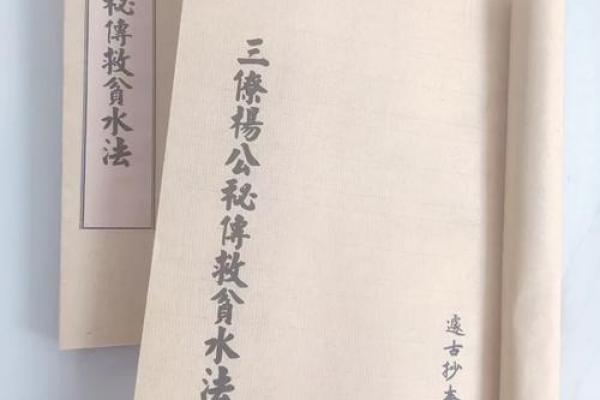 三僚楊公秘傳救貧水法
遽古抄本
秘傳救貧水法